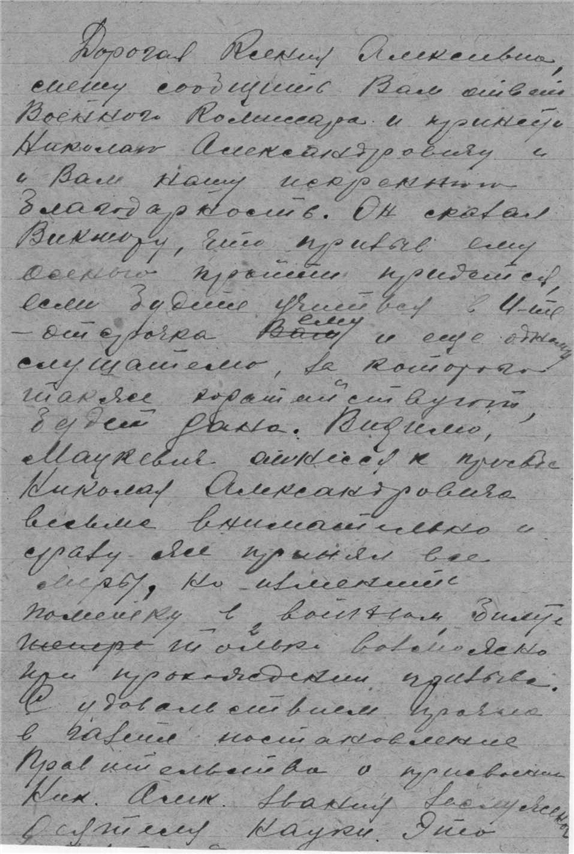 Дорогая Ксения Алексеевна,
спешу сообщить Вам ответ
Военного Комиссара и принести
Николаю Александровичу и
и Вам нашу искреннюю
благодарность. Он сказал
Виктору, что призыв ему
осенью пройти придется,
если будет учиться в
– отсрочка Вам ему и еще одному
слушателю, за которого
также ходатайствуют,
будет дана. Видимо,
Мацкевич отнесся к просьбе
Николая Александровича
весьма внимательно и
сразу-же принял все
меры, но изменить
пометку в военном билете
теперь только возможно
при прохождении призыва.
С удовольствием прочла
в газете постановление
Правительства о присвоении
Ник. Алек. звания Заслуженного
деятеля Науки. Это